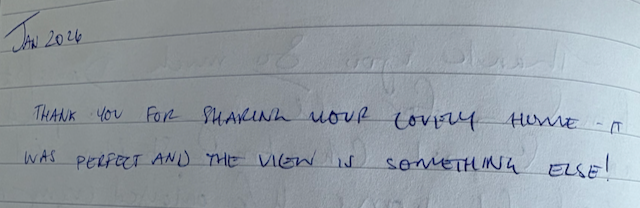 JAN 2026
THANK YOU FOR SHARING YOUR LOVELY HOME - IT
WAS PERFECT AND THE VIEW IS SOMETHING ELSE!